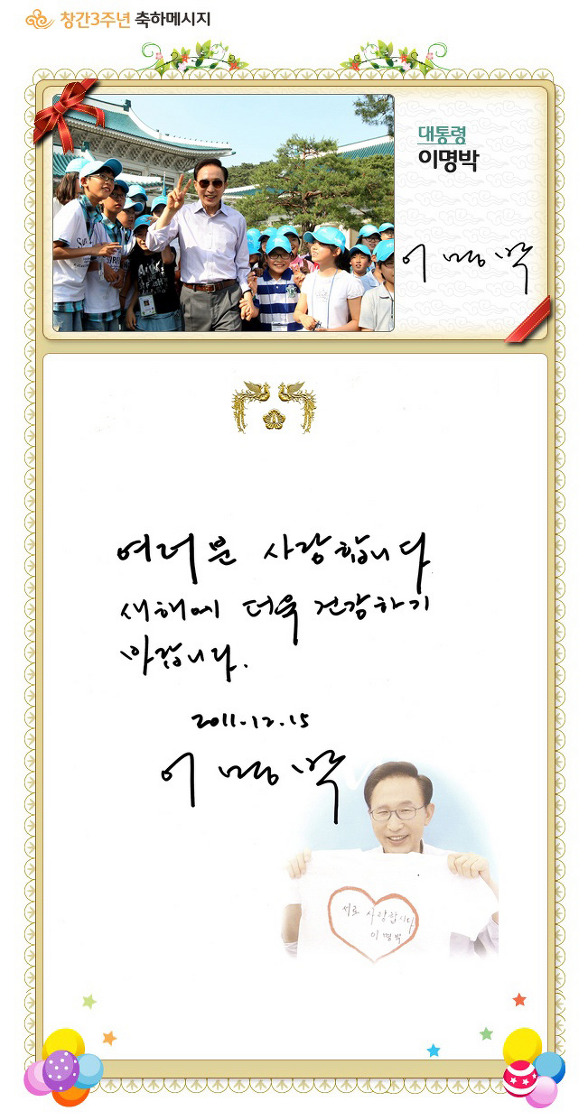 창간3주년 축하메시지
대통령
이명박
이명박
여러분 사랑합니다
새해에 더욱 건강하기
바랍니다.
2011.12.15
이명박
서로 사랑합시다
이명박